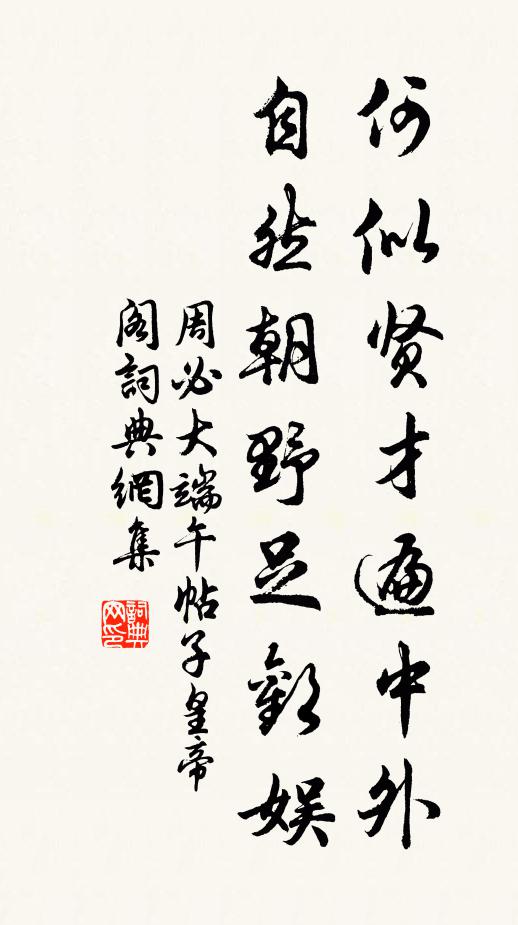 何似贤才遍中外
自然朝野足歡娱
周必大端午帖子皇帝
阁詞典網集
詞典
网印